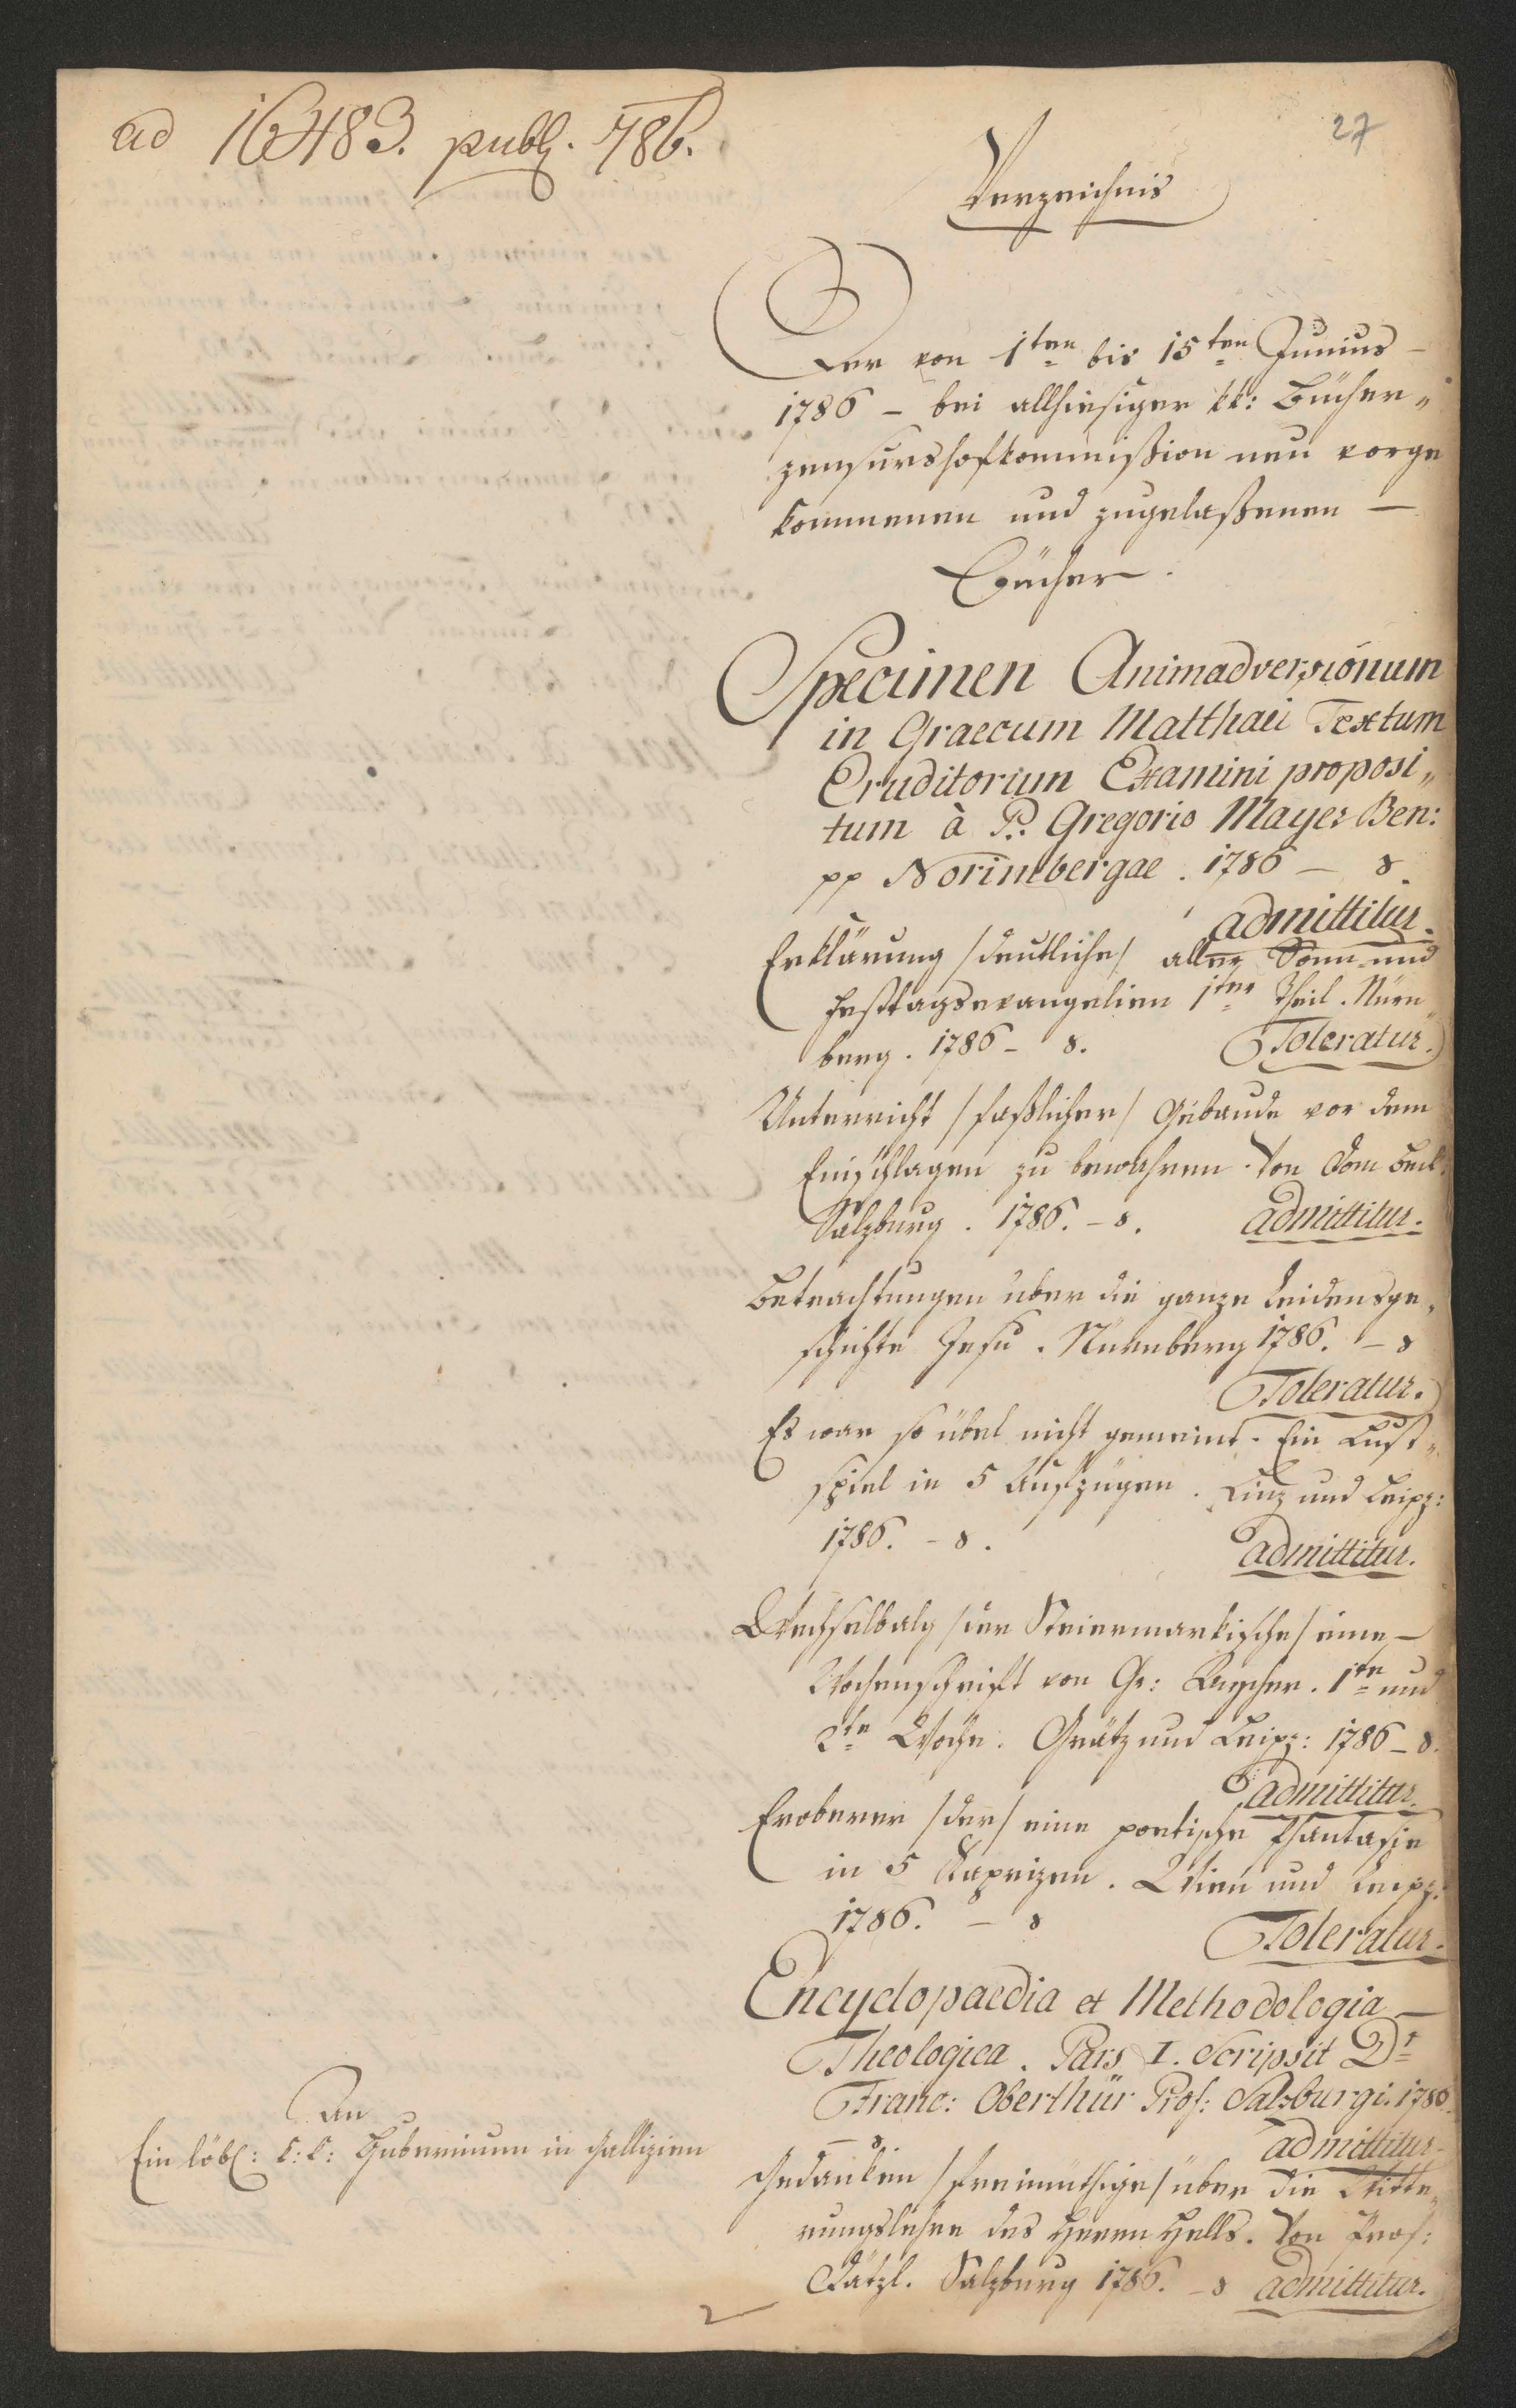 ad 16483. publ. 786.
27
Verzeichnis
Der von 1ten bis 15ten Junius –
1786 – bei allhiesiger kk: Bücher„
zensurshofkommißion neu vorge
kommenen und zugelaßenen –
Bücher.
Specimen Animadversionum
in Graecum Matthaei Textum
Eruditorium Examini proposi„
tum à P: Gregorio Mayer Ben:
pp Norimbergae. 1786 – 8.
admittitur.
Erklärung /deutliche/ aller Sonn- und
Festtagsevangelien 1ter Theil. Nürn„
berg. 1786 – 8. Toleratur.
Unterricht /faßlicher/ Gebäude vor dem
Einschlagen zu bewahren. Von Dom Beck.
Salzburg. 1786. – 8. admittitur.
Betrachtungen über die ganze Leidensge„
schichte Jesu. Nürnberg 1786. – 8
Toleratur.
Es war so übel nicht gemeint. Ein Lust„
spiel in 5 Aufzügen. Linz und Leipz:
1786. – 8. admittitur.
Wechselbalg /der Steiermarkische/ eine –
Wochenschrift von Gr: 1te und
2te Woche. Grätz und Leipz: 1786 – 8.
admittitur.
Eroberer /der/ eine poetische Phantasie
in 5 Kaprizen. Wien und Leipz:
1786. – 8 Toleratur.
Encyclopaedia et Methodologia –
Theologica. Pars I. Scripsit Dr
Franc: Oberthür Prof: Salzburgi. 1786.
– 8 admittitur.
Gedanken /freimüthige/ über die Witte„
rungslehre des Herrn Hells. Von Prof:
Dätzl. Salzburg 1786. – 8 admittitur.
An
Ein löbl: k: k: Gubernium in Gallizien
2